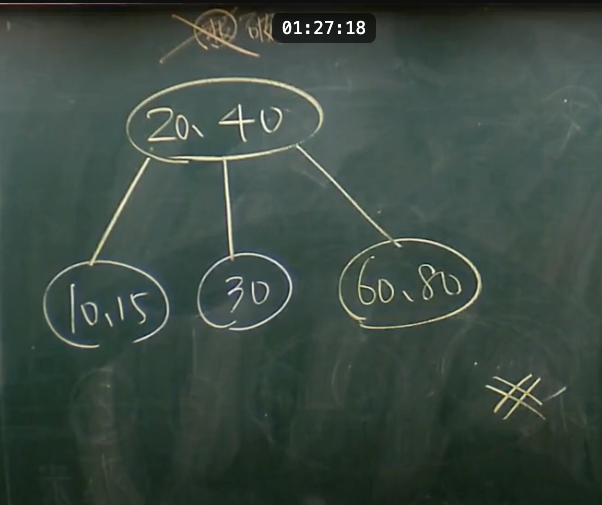 01:27:18
20、40
10、15
30
60、80